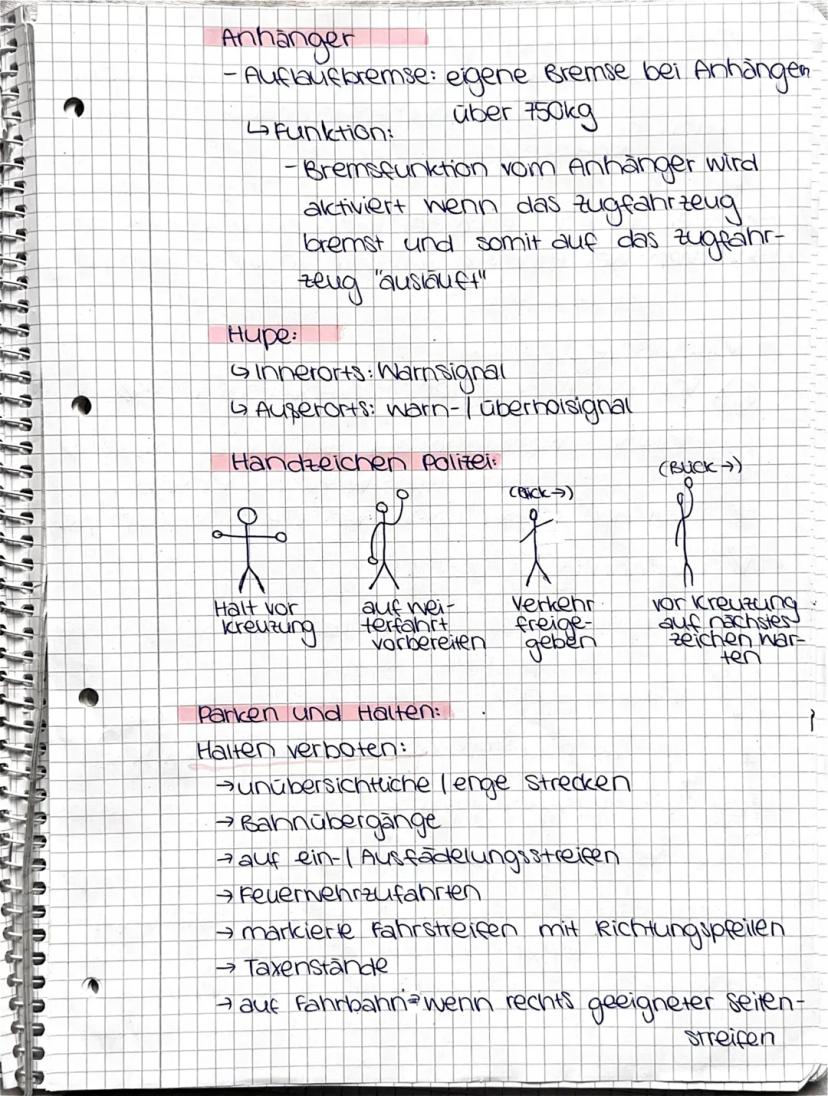 Anhänger
- Auflaufbremse: eigene Bremse bei Anhängern
über 750kg
↳ Funktion:
- Bremsfunktion vom Anhänger wird
aktiviert wenn das Zugfahrzeug
bremst und somit auf das Zugfahr-
zeug "ausläuft"
Hupe:
↳ Innerorts: Warnsignal
↳ Außerorts: Warn- / überholsignal
Handzeichen Polizei:
(Blick →) (Blick →)
Halt vor
Kreuzung
auf Wei-
terfahrt
vorbereiten
Verkehr
freige-
geben
vor Kreuzung
auf nächstes
Zeichen war-
ten
Parken und Halten:
Halten verboten:
→ unübersichtliche / enge Strecken
→ Bahnübergänge
→ auf ein- / Ausfädelungsstreifen
→ Feuerwehrzufahrten
→ markierte Fahrstreifen mit Richtungspfeilen
→ Taxenstände
→ auf Fahrbahn → wenn rechts geeigneter Seiten-
streifen